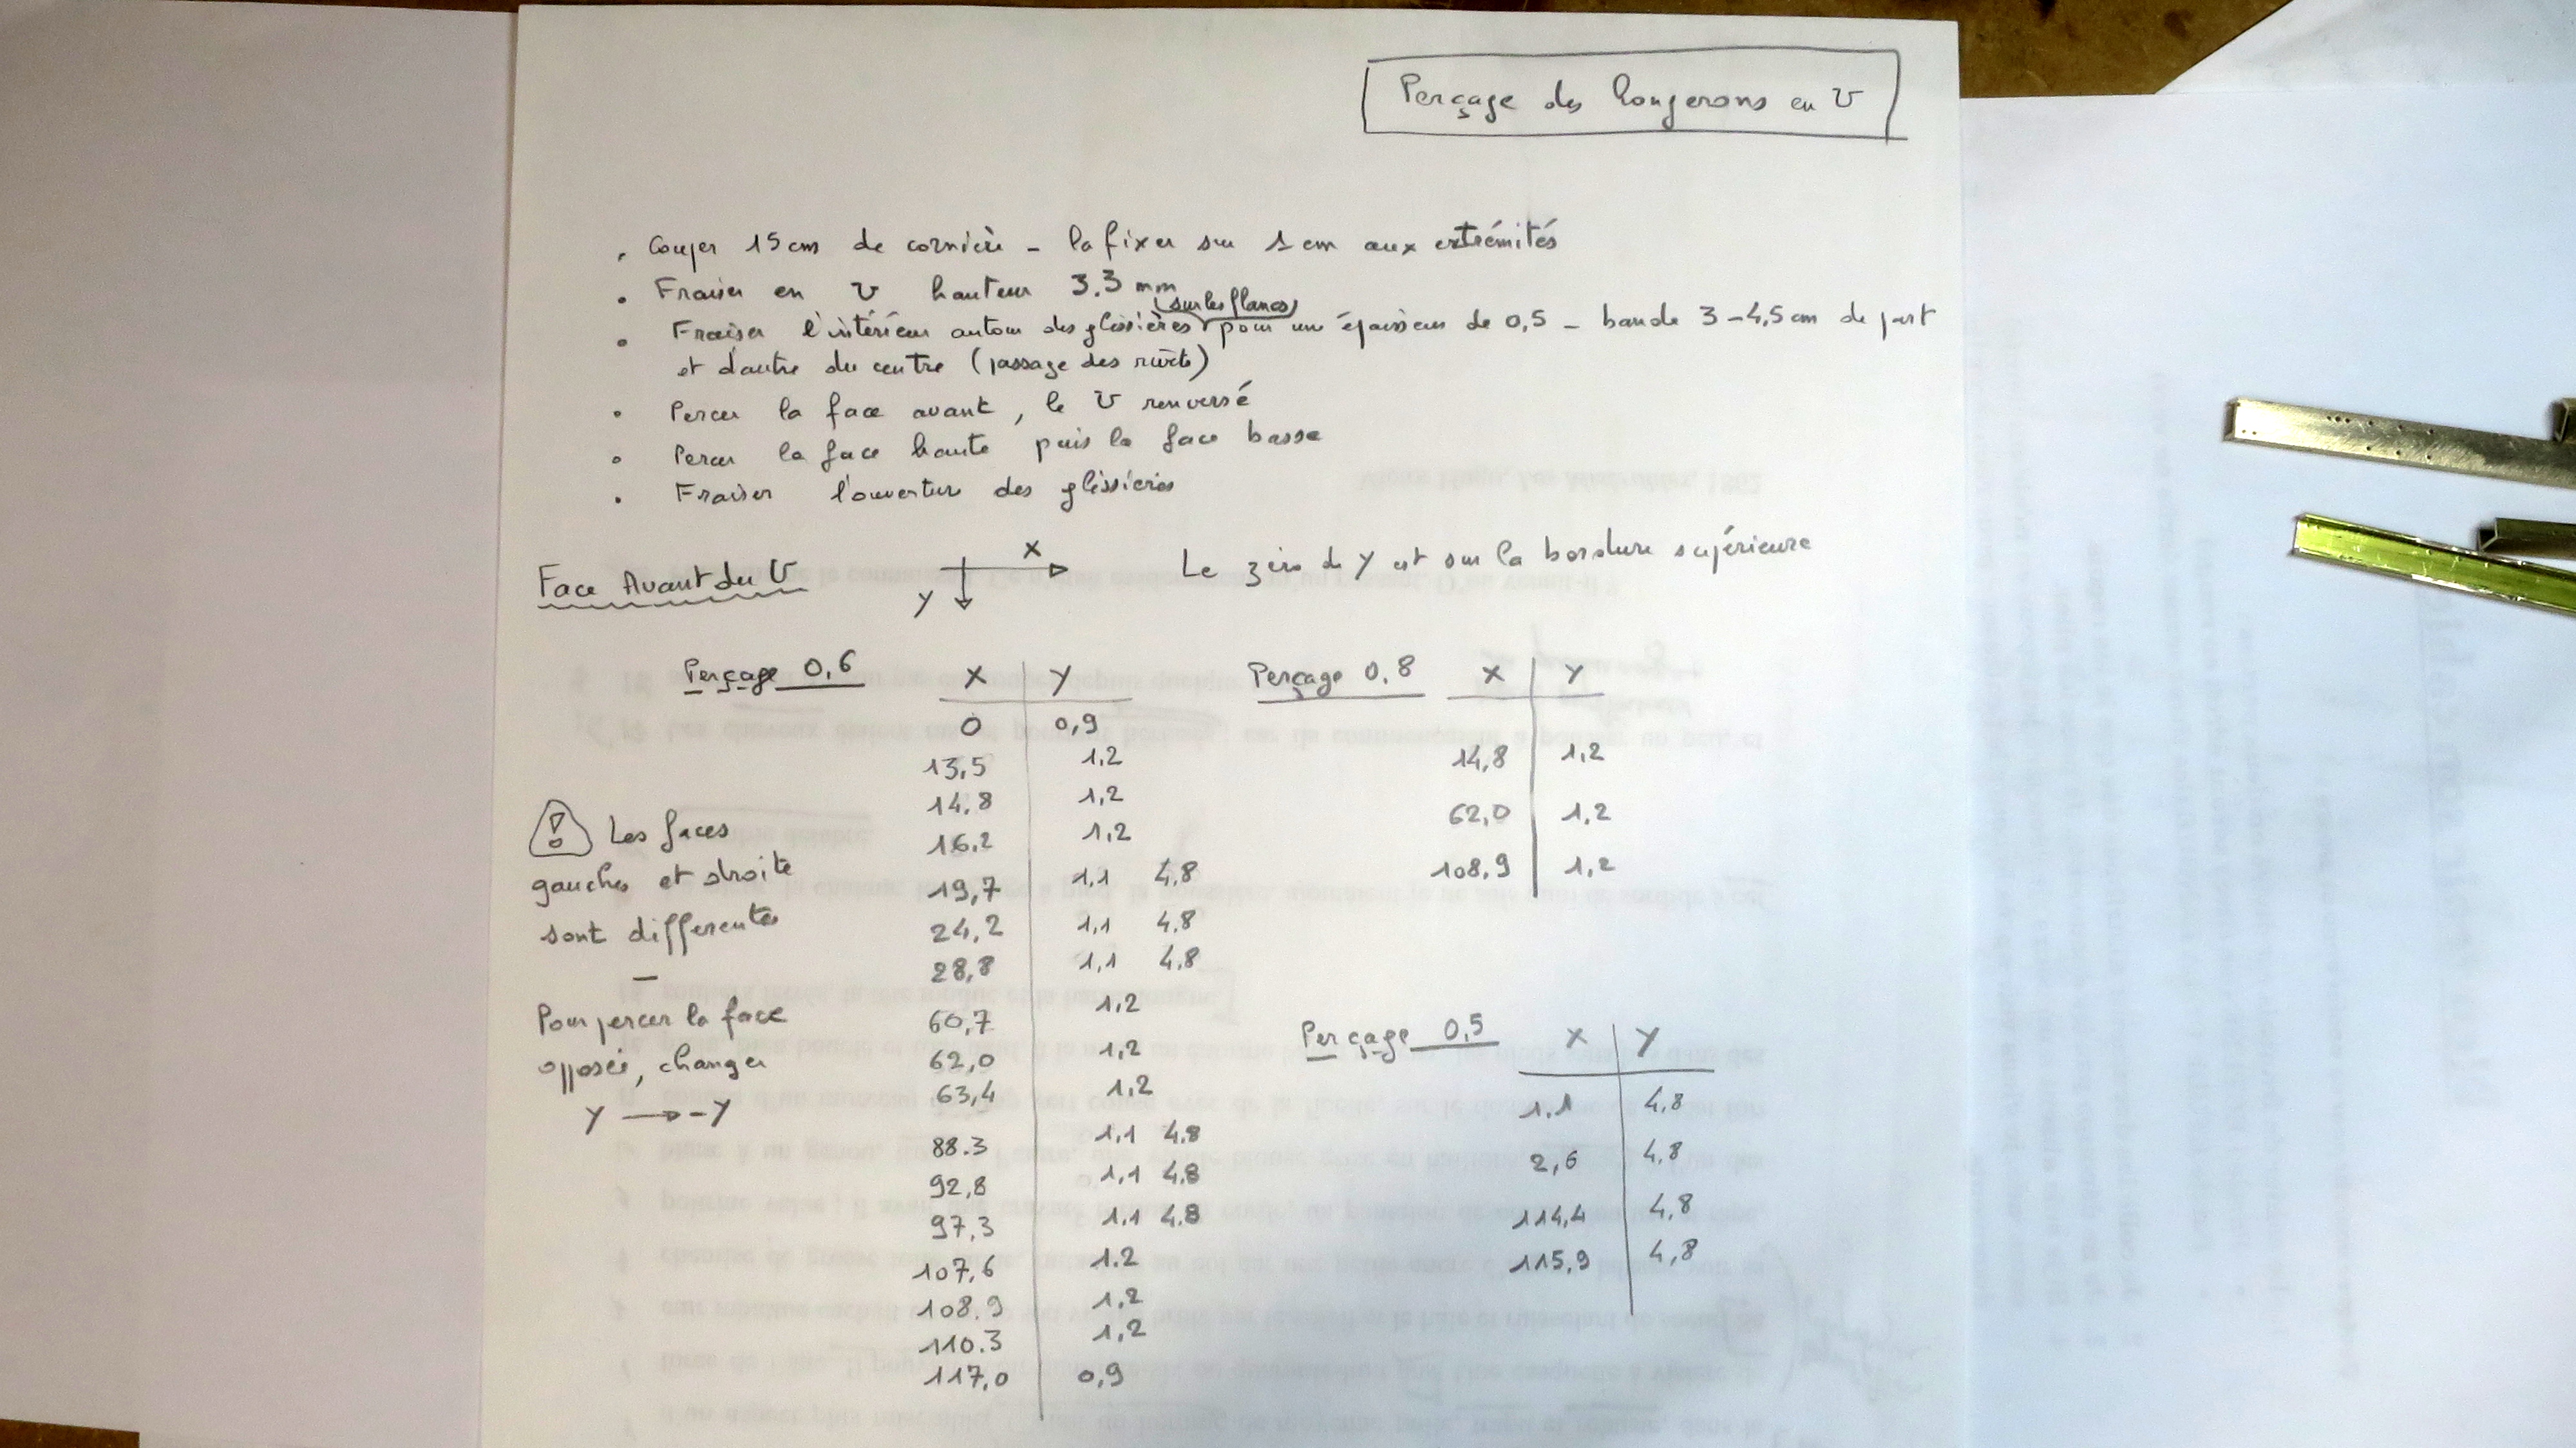 Perçage des longerons en V
. Couper 15 cm de cornière - la fixer sur 1 cm aux extrémités
. Fraiser en V hauteur 3.3 mm
(sur les flancs)
. Fraiser l'intérieur autour des glissières pour une épaisseur de 0,5 - bande 3-4,5 cm de part
et d'autre du centre (passage des rivets)
. Percer la face avant, le V renversé
. Percer la face haute puis la face basse
. Fraiser l'ouverture des glissières
Face Avant du V
X
Y
Le zéro de Y est sur la bordure supérieure
Perçage 0,6
X Y
0 0,9
13,5 1,2
14,8 1,2
16,2 1,2
19,7 1,1 4,8
24,2 1,1 4,8
28,8 1,1 4,8
60,7 1,2
62,0 1,2
63,4 1,2
88.3 1,1 4.8
92,8 1,1 4.8
97,3 1,1 4.8
107,6 1.2
108.9 1,2
110.3 1,2
117,0 0,9
! Les faces
gauches et droite
sont differentes
-
Pour percer la face
opposée, changer
Y → -Y
Perçage 0,8
X Y
14,8 1,2
62,0 1,2
108,9 1,2
Perçage 0,5
X Y
1.1 4,8
2,6 4,8
114,4 4,8
115,9 4,8